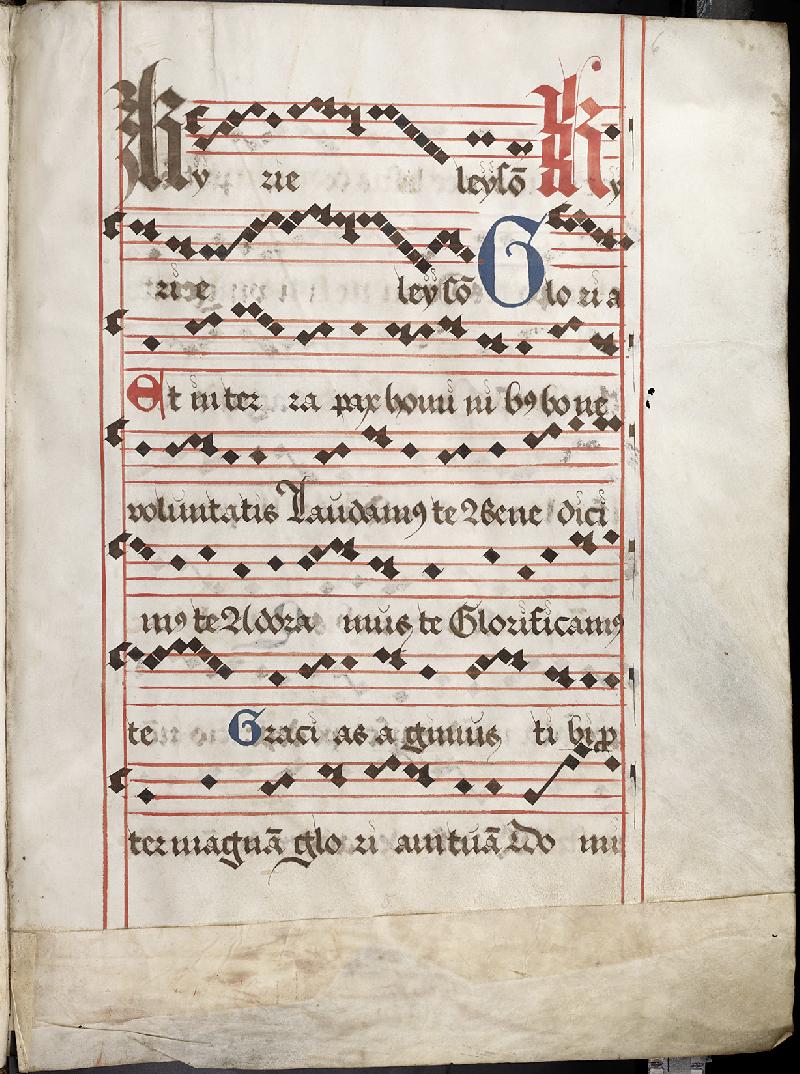 Ky rie leysō Ky
rie leysō Glo ri a
Et in ter ra pax homi ni bꝰ bo ne
voluntatis Laudamꝰ te Bene dici
mꝰ te Adora mus te Glorificamꝰ
te Graci as a gimus ti bi ꝓp
ter magnā glo ri am tuā Do mi